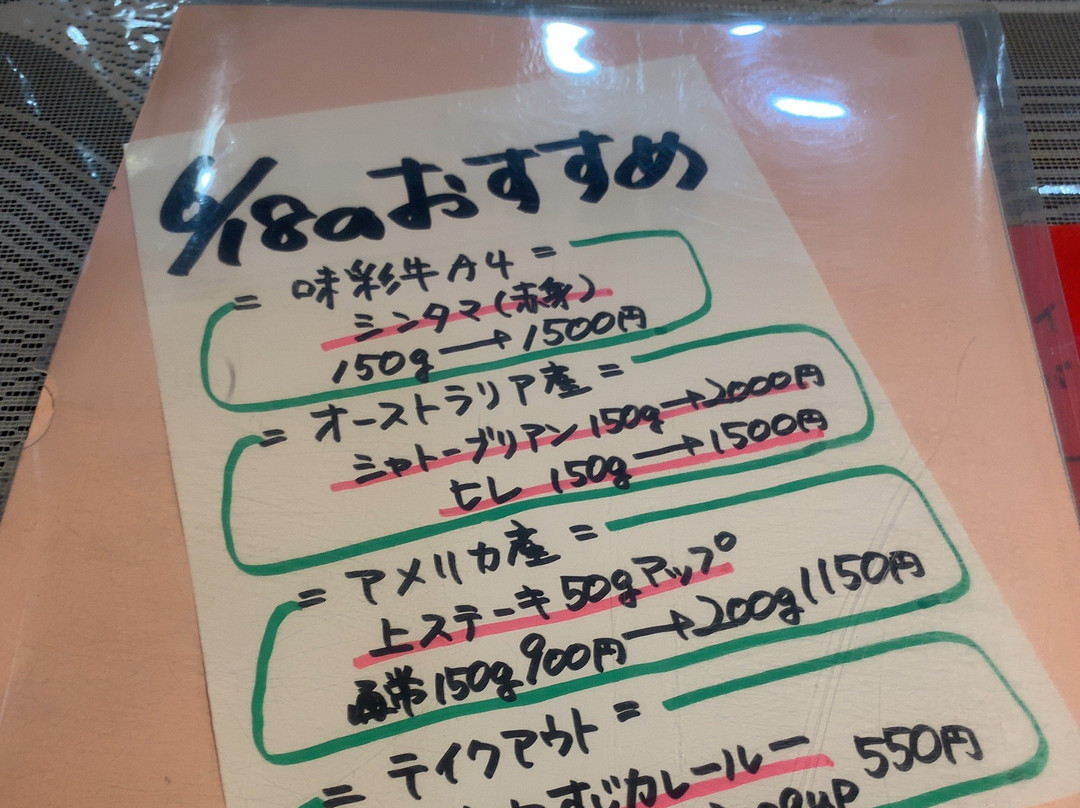 6/18のおすすめ
= 味彩牛A4 =
シンタマ(赤身)
150g→1500円
= オーストラリア産 =
シャトーブリアン 150g→2000円
ヒレ 150g→1500円
= アメリカ産 =
上ステーキ 50gアップ
通常150g900円→200g1150円
= テイクアウト =
すじカレールー 550円
up